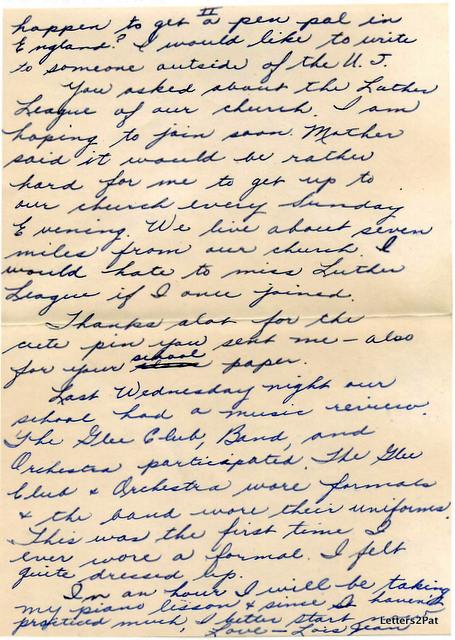 II
happen to get a pen pal in
England? I would like to write
to someone outside of the U.S.
You asked about the Luther
League of our church. I am
hoping to join soon. Mother
said it would be rather
hard for me to get up to
our church every Sunday
Evening. We live about seven
miles from our church. I
would hate to miss Luther
League if I once joined.
Thanks alot for the
cute pin you sent me - also
for your school paper.
Last Wednesday night our
school had a music review.
The Glee Club, Band, and
Orchestra participated. The Glee
Club & Orchestra wore formals
& the band wore their uniforms.
This was the first time I
ever wore a formal. I felt
quite dressed up.
In an hour I will be taking
my piano lesson & since I haven't
practiced much, I better start now
Love - Lois Jean
Letters2Pat